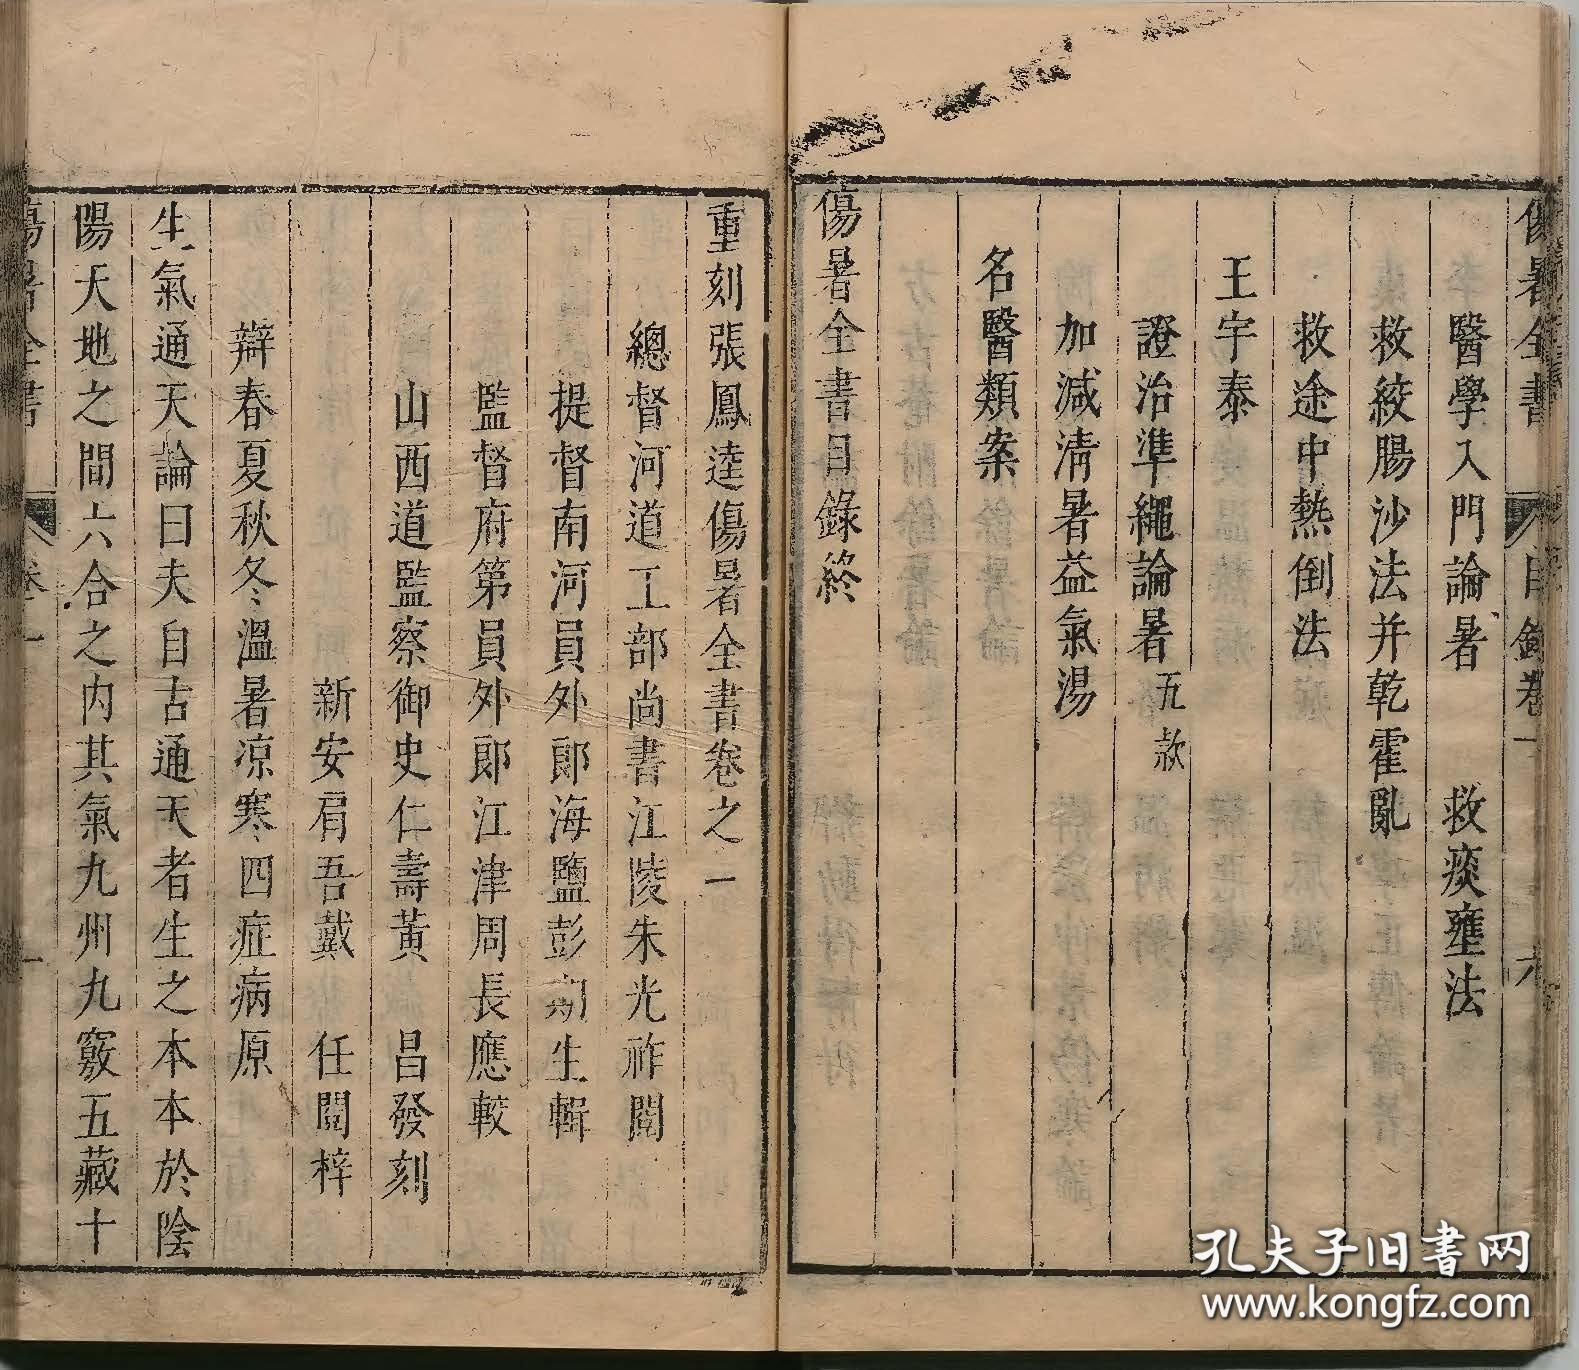 傷暑全書 目錄卷一 六
醫學入門論暑 救痰壅法
救絞腸沙法并乾霍亂
救途中熱倒法
王宇泰
證治準繩論暑五款
加減清暑益氣湯
名醫類案
傷暑全書目錄終
重刻張鳳逵傷暑全書卷之一
總督河道工部尚書江陵朱光祚閱
提督南河員外郎海鹽彭期生輯
監督府第員外郎江津周長應較
山西道監察御史仁壽黃 昌發刻
新安肩吾戴 任閱梓
辯春夏秋冬溫暑凉寒四症病原
生氣通天論曰夫自古通天者生之本本於陰
陽天地之間六合之内其氣九州九竅五藏十
傷暑全書 卷一 一
孔夫子旧书网
www.kongfz.com